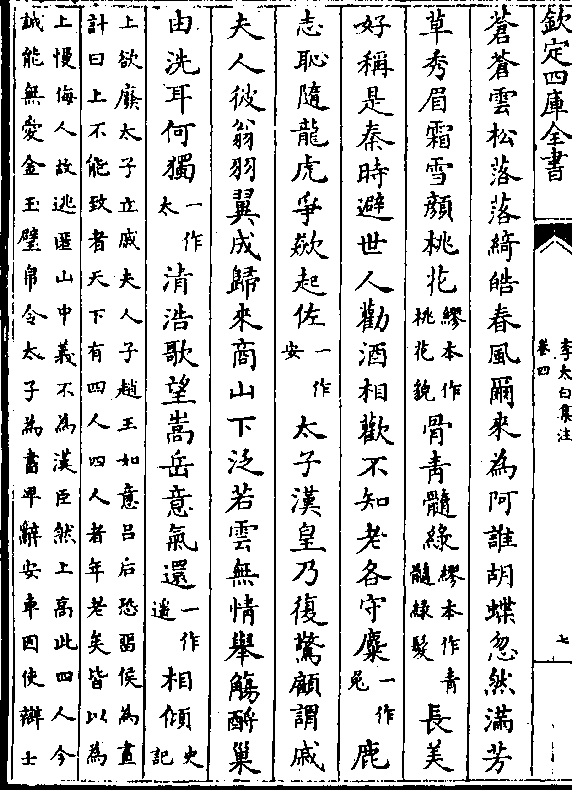 欽定四庫全書
李太白集注
卷四
七
蒼蒼雲松落落綺皓春風爾來為阿誰胡蝶忽然滿芳
草秀眉霜雪顏桃花繆本作桃花貌骨青髓綠繆本作青髓綠髮長美
好稱是秦時避世人勸酒相歡不知老各守麋一作兔鹿
志恥隨龍虎爭欻起佐一作安太子漢皇乃復驚顧謂戚
夫人彼翁羽翼成歸來商山下泛若雲無情舉觴酹巢
由洗耳何獨一作太清浩歌望嵩岳意氣還一作遙相傾史記
上欲廢太子立戚夫人子趙王如意呂后恐留侯為畫
計曰上不能致者天下有四人四人者年老矣皆以為
上慢侮人故逃匿山中義不為漢臣然上高此四人今
誠能無愛金玉璧帛令太子為書卑辭安車因使辯士